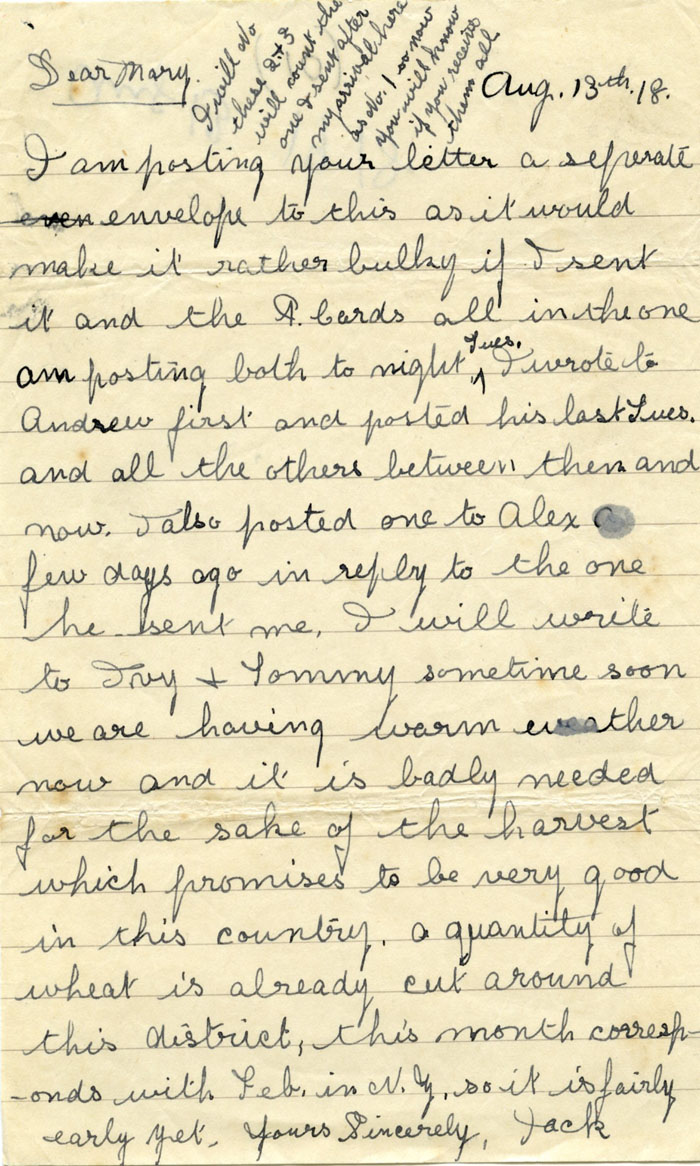 Dear Mary.
Aug. 13th. 18.
I will No
these 2 + 3
will count the
one I sent after
my arrival here
as No. 1 so now
you will know
if you receive
them all
I am posting your letter a seperate
even envelope to this as it would
make it rather bulky if I sent
it and the P. Cards all in the one
am posting both to night Tues. I wrote to
Andrew first and posted his last Tues.
and all the others between then and
now. I also posted one to Alex a
few days ago in reply to the one
he sent me. I will write
to Ivy + Tommy sometime soon
we are having warm weather
now and it is badly needed
for the sake of the harvest
which promises to be very good
in this country. a quantity of
wheat is already cut around
this district, this month corresp-
-onds with Feb. in N. Z. so it is fairly
early yet. Yours Sincerely, Jack